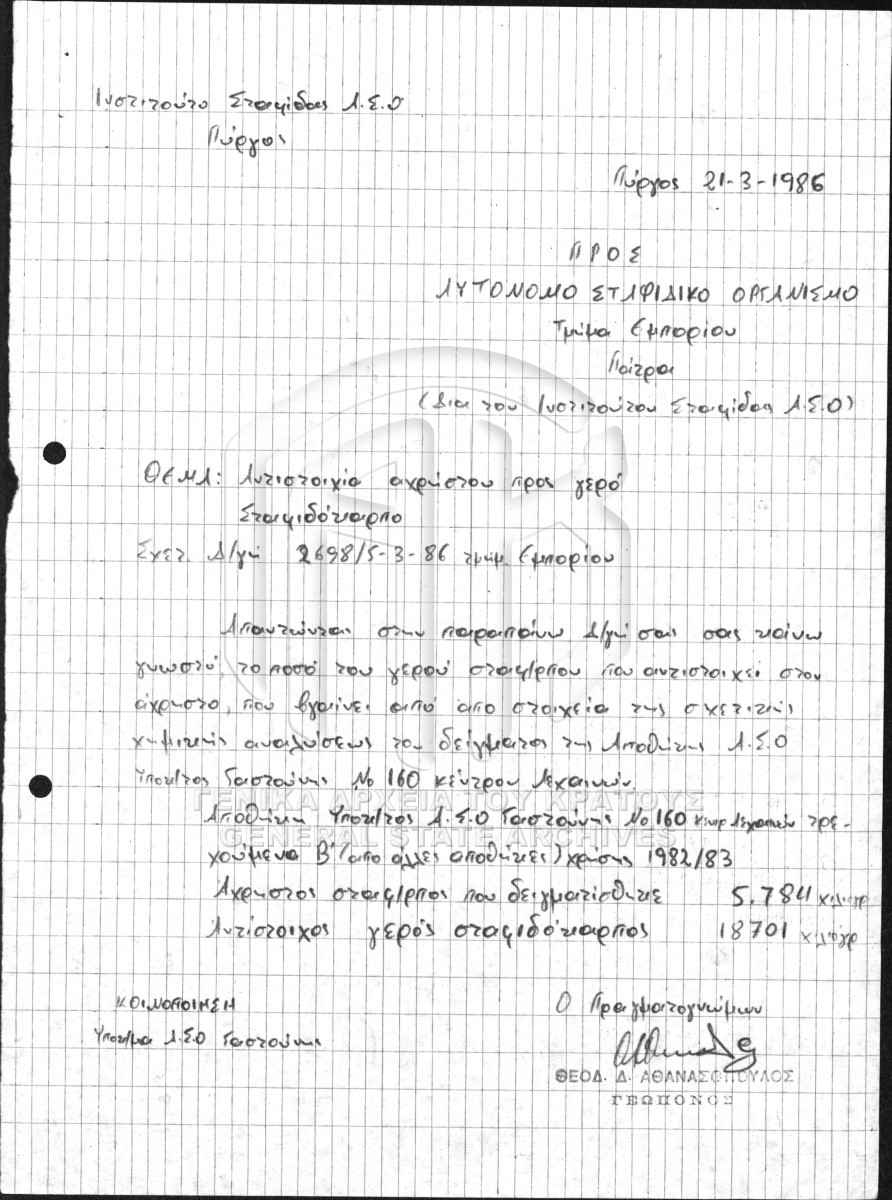 Ινστιτούτο Σταφίδας Α.Σ.Ο
Πύργος
Πύργος 21-3-1986
ΠΡΟΣ
ΑΥΤΟΝΟΜΟ ΣΤΑΦΙΔΙΚΟ ΟΡΓΑΝΙΣΜΟ
Τμήμα Εμπορίου
Πάτρα
(Δια του Ινστιτούτου Σταφίδας Α.Σ.Ο)
ΘΕΜΑ: Αντιστοιχία αχρήστου προς γερό
Σταφιδόκαρπο
Σχετ. Δ/γή 2698/5-3-86 τμήμ. Εμπορίου
Απαντώντας στην παραπάνω Δ/γή σας σας κάνω
γνωστό, το ποσό του γερού σταφ/ρπου που αντιστοιχεί στον
άχρηστο, που βγαίνει από από στοιχεία της σχετικής
χημικής αναλύσεως του δείγματος της Αποθήκης Α.Σ.Ο
Υποκ/τος Γαστούνης Νο 160 κέντρου Λεχαινών.
ΓΕΝΙΚΑ ΑΡΧΕΙΑ ΤΟΥ ΚΡΑΤΟΥΣ
Αποθήκη Υποκ/τος Α.Σ.Ο Γαστούνης Νο 160 κεντρ Λεχαινών τρε-
GENERAL STATE ARCHIVES
χούμενα Β' (απο άλλες αποθήκες) χρήσης 1982/83
Άχρηστος σταφ/ρπος που δειγματίσθηκε 5.784 χιλιόγρ
Αντίστοιχος γερός σταφιδόκαρπος 18701 χιλιόγρ
ΚΟΙΝΟΠΟΙΗΣΗ
Υποκ/μα Α.Σ.Ο Γαστούνης
Ο Πραγματογνώμων
ΘΕΟΔ. Δ. ΑΘΑΝΑΣΟΠΟΥΛΟΣ
ΓΕΩΠΟΝΟΣ